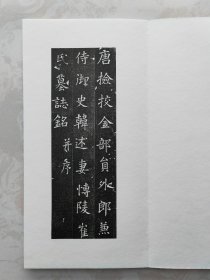 唐撿挍金部員外郎兼
侍御史韓述妻博陵崔
氏墓誌銘 并序